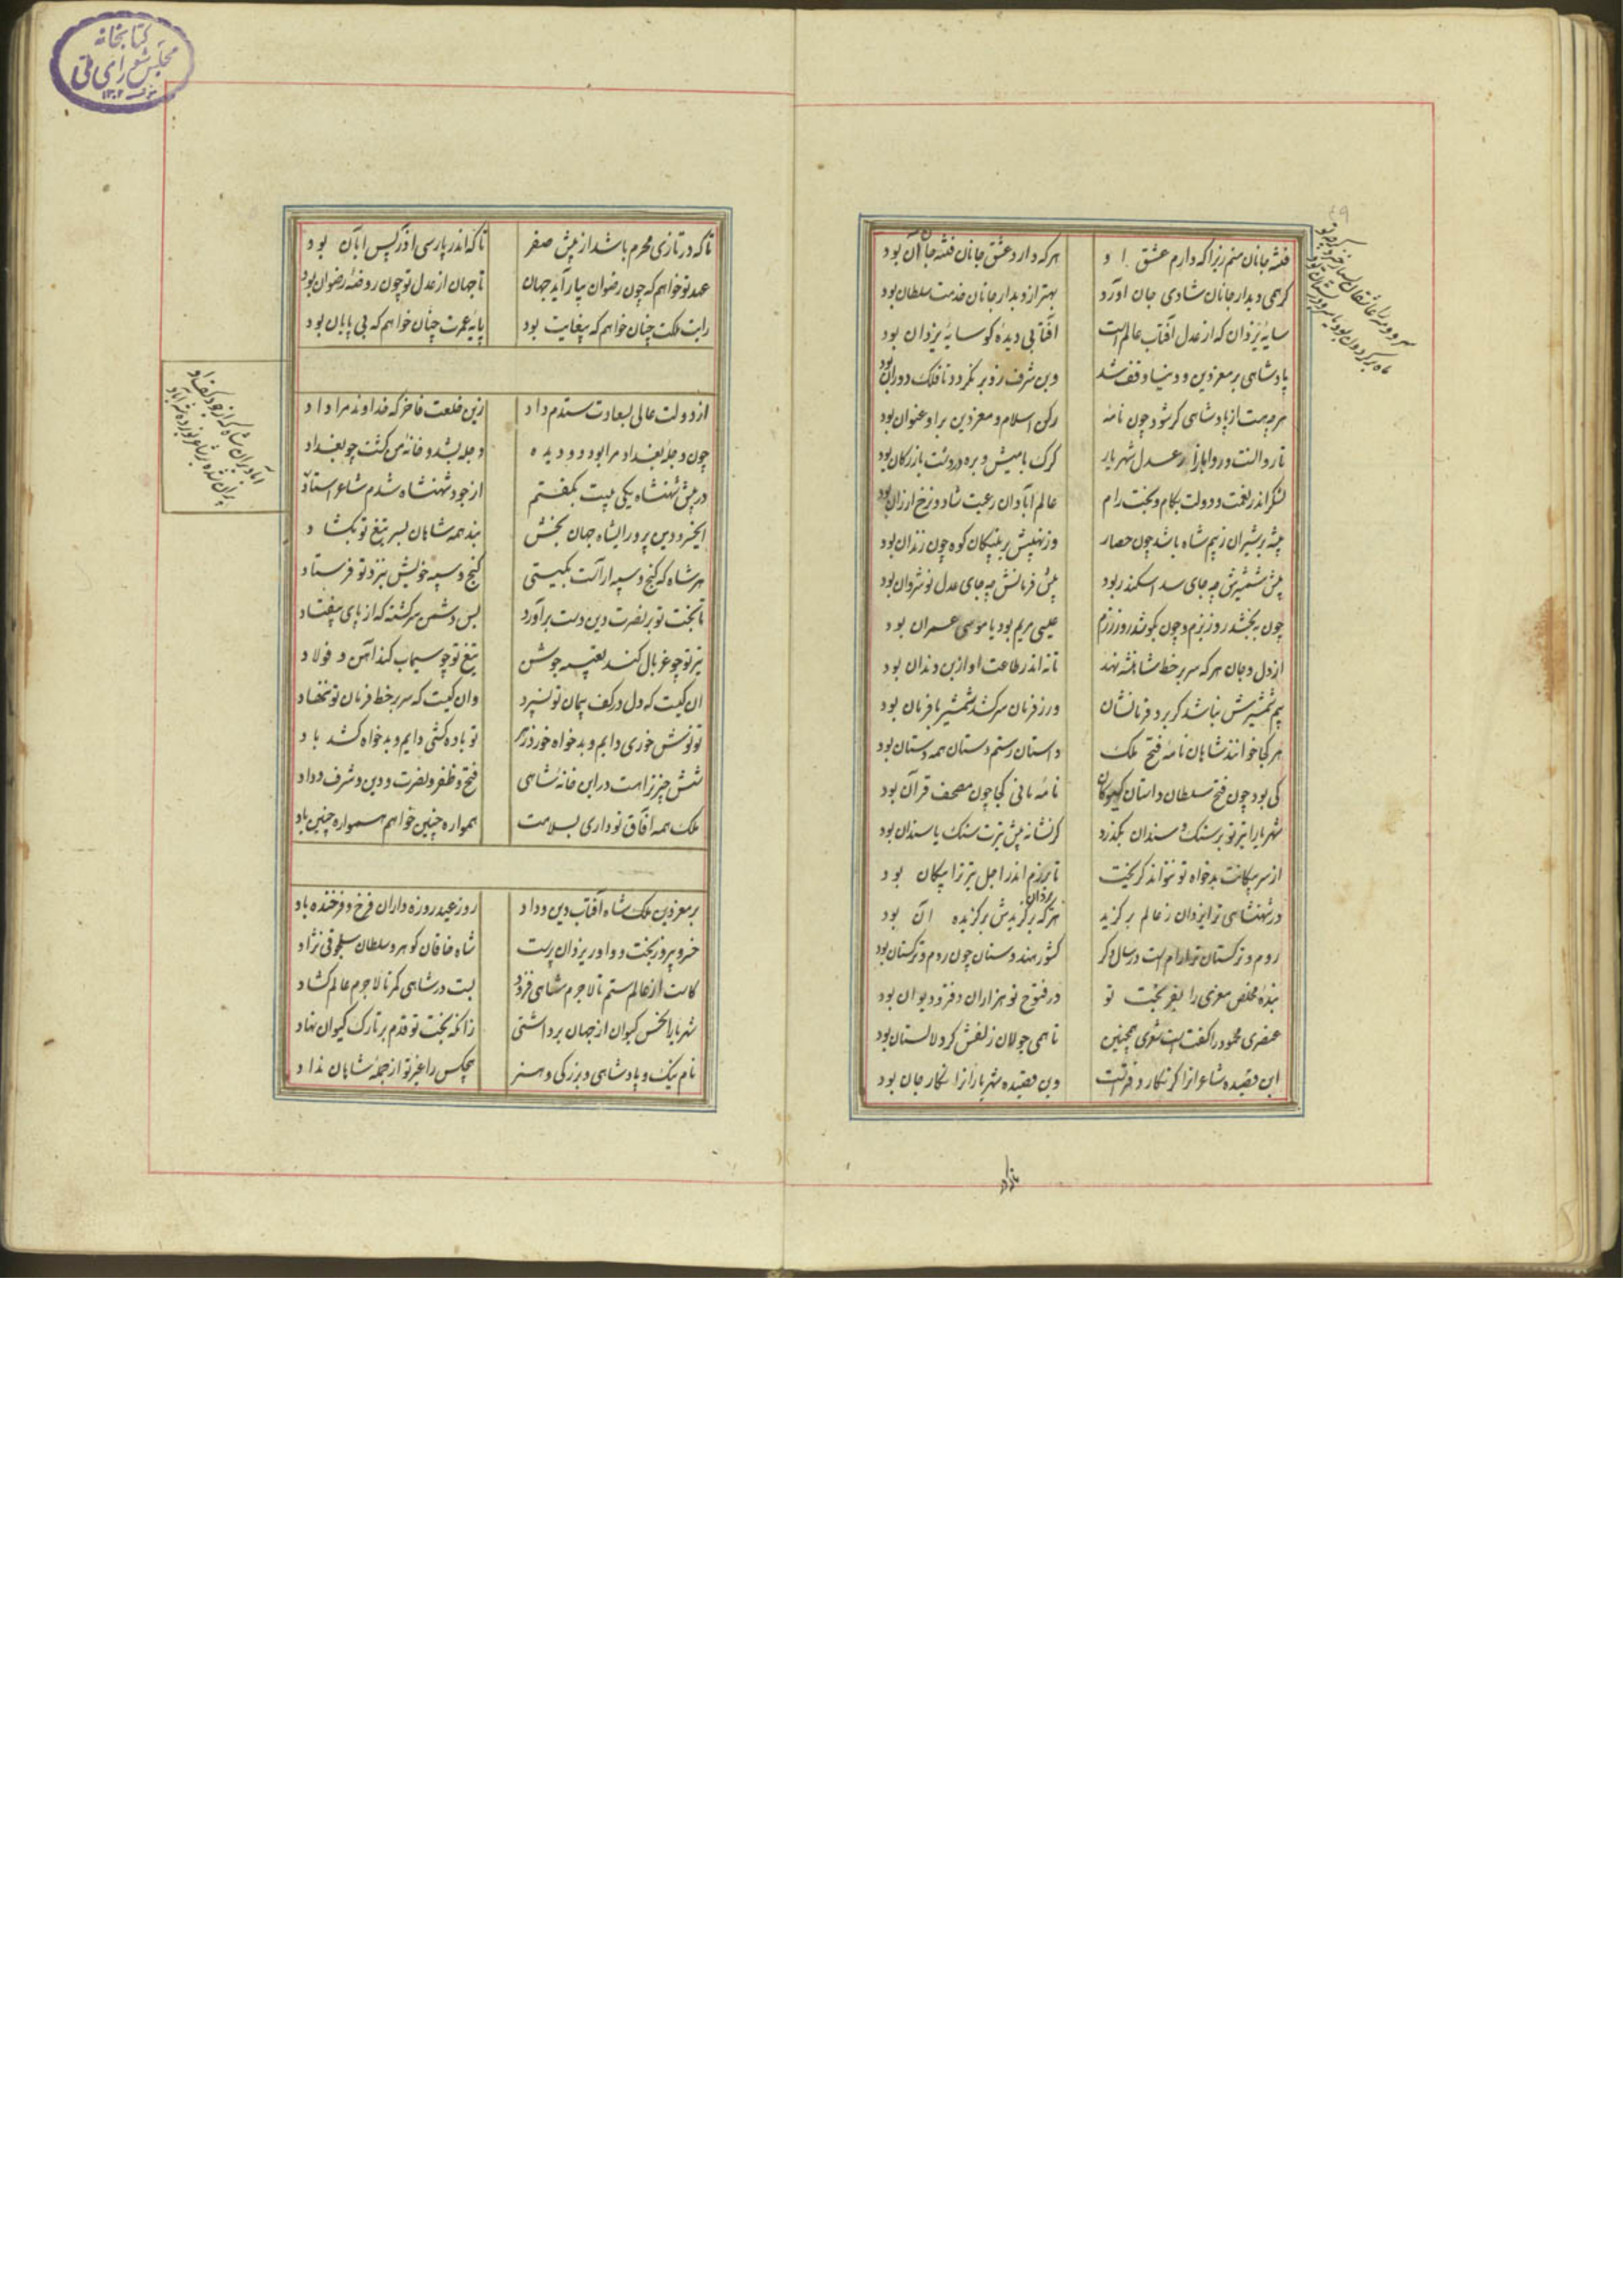 فتنهٔ جانان منم زیرا که دارم عشق او هرکه دارد عشق جانان فتنهٔ جانان بود
گر همی دیدار جانان شادی جان آورد بهتر از دیدار جانان خدمت سلطان بود
سایهٔ یزدان که از عدل آفتاب عالم است آفتابی دیدهٔ کو سایهٔ یزدان بود
پادشاهی بر معزدین و دنیا وقف شد وین شرف زو برنگردد تا فلک دوران بود
هرچه هست از پادشاهی گر شود چون نامهٔ رکن اسلام و معزدین برو عنوان بود
گرگ با میش و بره در دشت بازرگان بود
لشکر اندر نعمت و دولت بکام و بخت رام عالم آبادان رعیت شاد و نرخ ارزان بود
بیشه بر شیران ز بیم شاه باشد چون حصار وز نهیبش بر پلنگان کوه چون زندان بود
پیش شمشیرش چه جای سد اسکندر بود پیش فرمانش چه جای عدل نوشروان بود
چون ببخشد روز بزم و چون بکوشد روز رزم عیسی مریم بود یا موسی عمران بود
از دل و جان هرکه سر بر خط شاهنشه نهد تا نه اندر طاعت او از بن دندان بود
بیم شمشیرش نباشد گر برد فرمانشان ور ز فرمان سر کشد شمشیر با فرمان بود
هر کجا خوانند شاهان نامهٔ فتح ملک داستان رستم دستان همه دستان بود
کی بود چون فتح سلطان داستان نامهٔ مانی کجا چون مصحف قرآن بود
شهریارا تیر تو بر سنگ و سندان بگذرد گر نشانه پیش تیرت سنگ یا سندان بود
از سر پیکانت بدخواه تو نتواند گریخت تا برزم اندر اجل تیر ترا پیکان بود
در شهنشاهی ترا یزدان ز عالم برگزید هرکه یزدان برگزیدش برگزیده آن بود
روم و ترکستان ترا رام است در سال دگر کشور هندوستان چون روم و ترکستان بود
بندهٔ مخلص معزی را بفر بخت تو در فتوح تو هزاران دفتر و دیوان بود
عنصری محمود را گفتست شعری همچنین تا همی جولان زلفش گرد لالستان بود
این قصیده شاعران را گر نگار دفترست وین قصیده شهریاران را نگار جان بود
تا که در تازی محرم باشد از پیش صفر تا که اندر پارسی آذر پس آبان بود
عهد تو خواهم که چون رضوان بیاراید جهان تا جهان از عدل تو چون روضهٔ رضوان بود
رایت ملکت چنان خواهم که بیغایت بود پایهٔ عمرت چنان خواهم که بی پایان بود
از دولت عالی بسعادت ستدم داد زین خلعت فاخر که خداوند مرا داد
چون دجلهٔ بغداد مرا بود دو دیده دجله بشد و خانهٔ من گشت چو بغداد
در پیش شهنشاه یکی بیت بگفتم از جود شهنشاه شدم شاعر استاد
ای خسرو دین پرور ای شاه جهان بخش بند همه شاهان بسر تیغ تو بگشاد
هر شاه که گنج و سپه آراست بگیتی گنج و سپه خویش بنزد تو فرستاد
تا بخت تو بر نصرت دین دست برآورد بس دشمن سرگشته که از پای بیفتاد
تیر تو چو غربال کند تعبیه جوشن تیغ تو چو سیماب کند آهن و فولاد
آن کیست که دل در کف پیمان تو نسپرد وان کیست که سر بر خط فرمان تو ننهاد
تو نوش خوری دایم و بدخواه خورد زهر تو باده کشی دایم و بدخواه کشد باد
شش چیز تراست در این خانهٔ شاهی فتح و ظفر و نصرت و دین و شرف و داد
ملک همه آفاق تو داری بسلامت همواره چنین خواهم همواره چنین باد
بر معزدین ملکشاه آفتاب دین و داد روز عید روزه داران فرخ و فرخنده باد
خسرو پیروزبخت و داور یزدان پرست شاه خاقان گوهر و سلطان سلجوقی نژاد
کاست از عالم ستم تا لاجرم شاهی فزود بست در شاهی کمر تا لاجرم عالم گشاد
شهریارا نحس کیوان از جهان برداشتی زانکه بخت تو قدم بر تارک کیوان نهاد
نام نیک و پادشاهی و بزرگی و هنر هیچکس را غیر تو از جملهٔ شاهان نداد
کتابخانه
مجلس شورای ملی